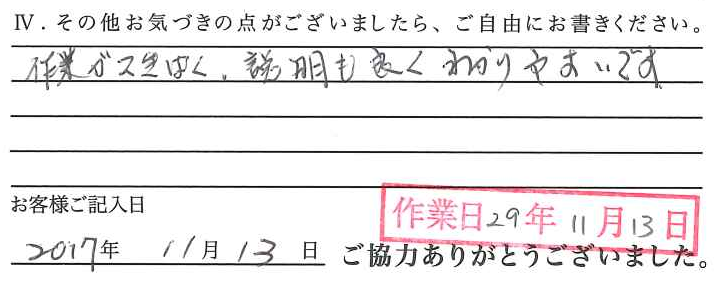 Ⅳ．その他お気づきの点がございましたら、ご自由にお書きください。
作業がスばやく、説明も良くわかりやすいです
お客様ご記入日
作業日29年11月13日
2017年 11月13日 ご協力ありがとうございました。